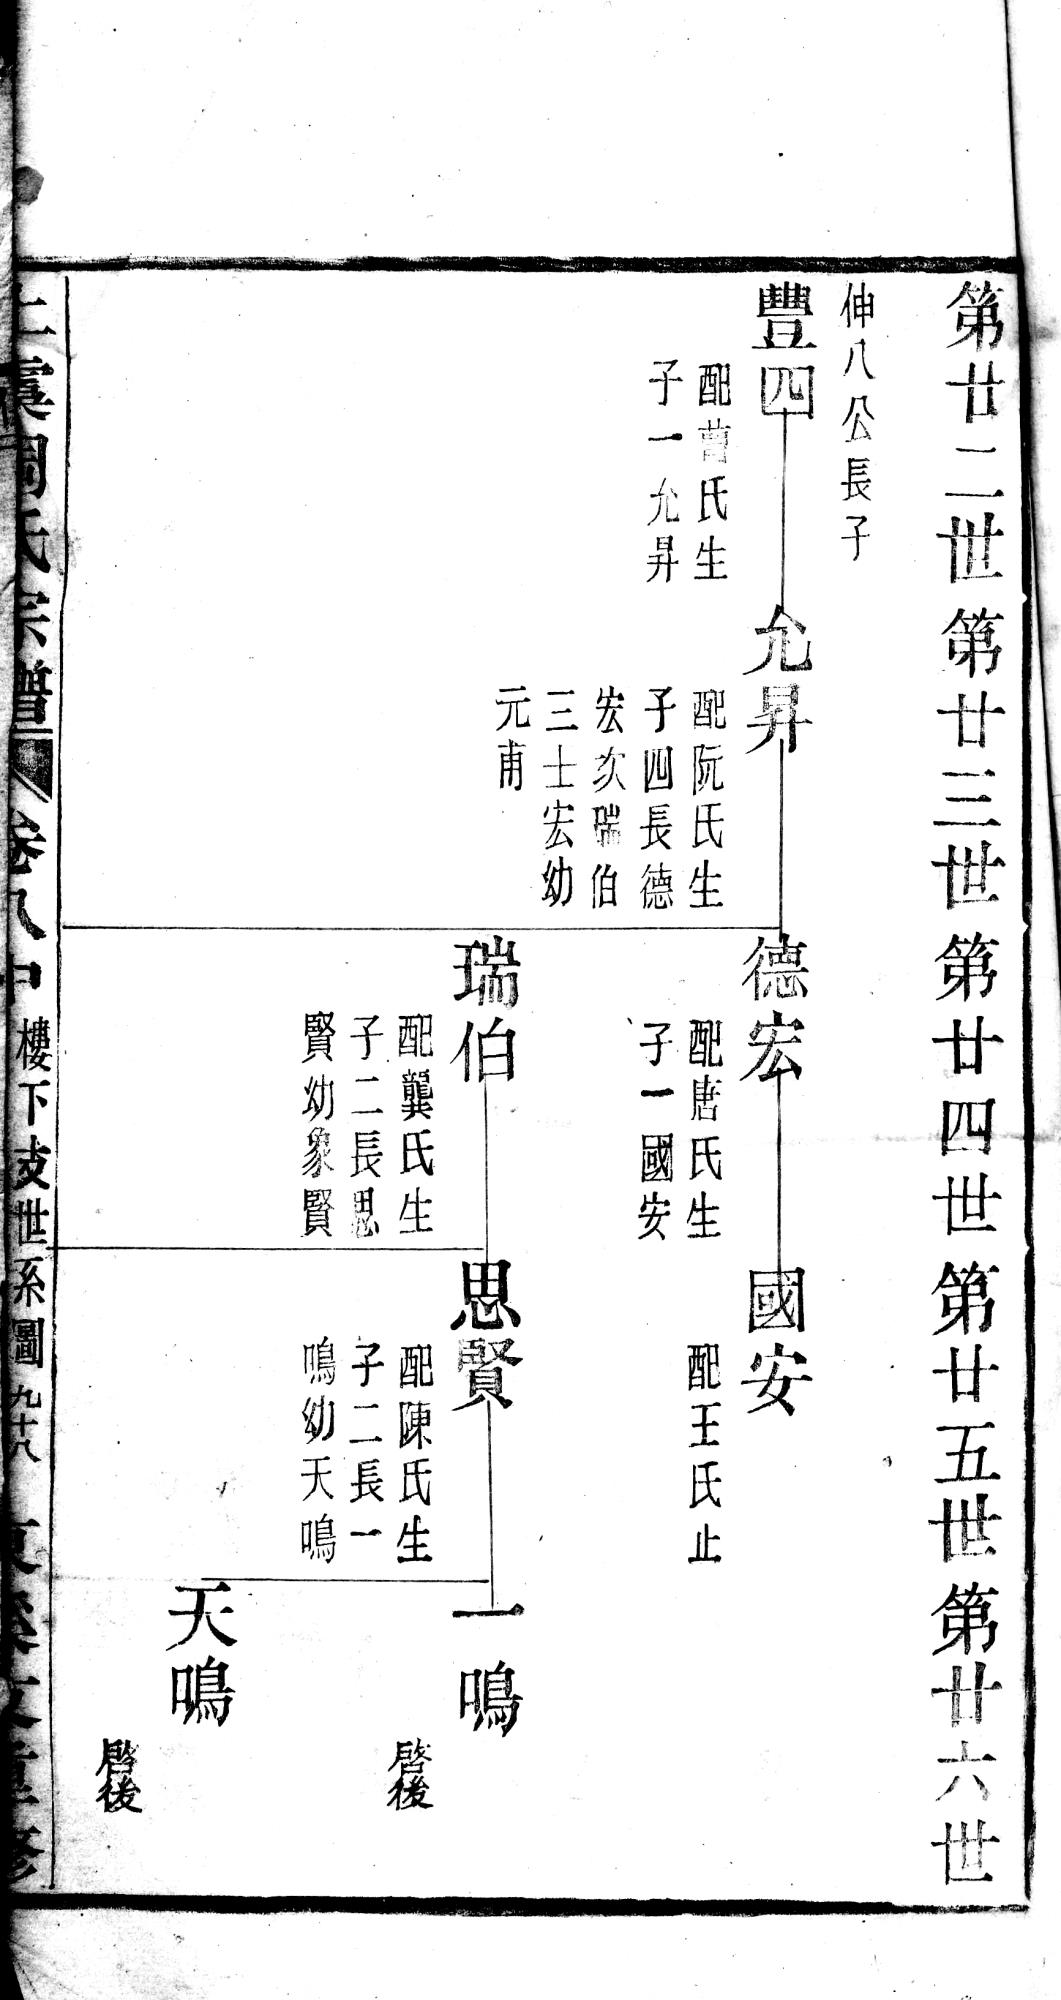 第廿二世 第廿三世 第廿四世 第廿五世 第廿六世
伸八公長子
豐四
配曹氏生
子一允昇
允昇
配阮氏生
子四長德
宏次瑞伯
三士宏幼
元甫
德宏
配唐氏生
子一國安
國安
配王氏止
瑞伯
配龔氏生
子二長思
賢幼象賢
思賢
配陳氏生
子二長一
鳴幼天鳴
一鳴
啓後
天鳴
啓後
上虞周氏宗譜 卷八中 樓下支世系圖 九十八